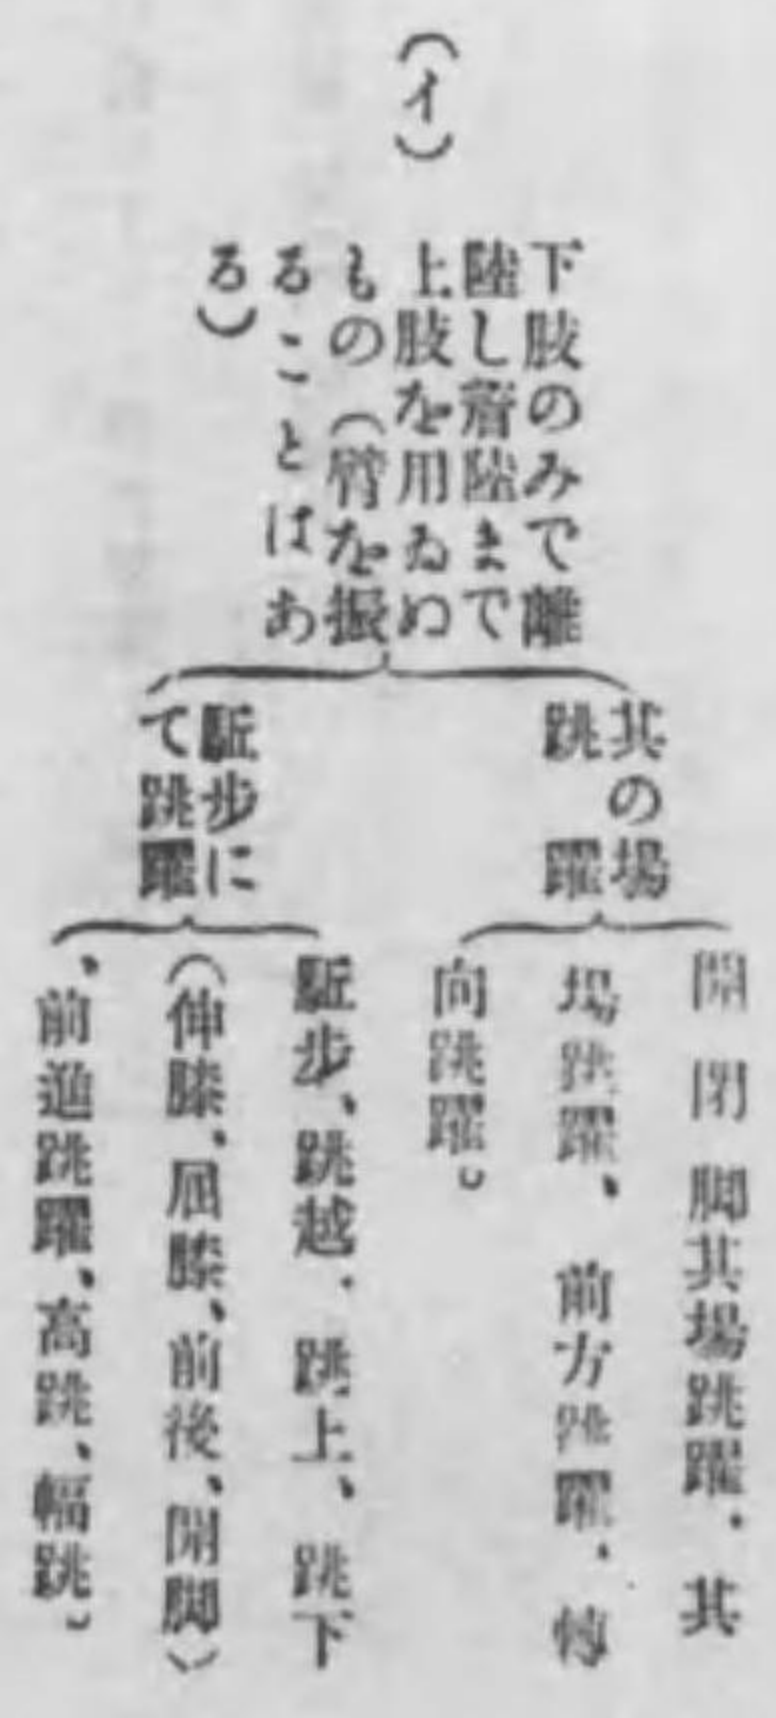 (イ)
下肢のみで離
陸し著陸まで
上肢を用ゐぬ
もの(臂を振
ることはあ
る)
其の場
跳躍
開閉脚其場跳躍、其
場跳躍、前方跳躍、轉
向跳躍。
駈步に
て跳躍
駈步、跳越、跳上、跳下
(伸膝、屈膝、前後、開脚)
、前進跳躍、高跳、幅跳。